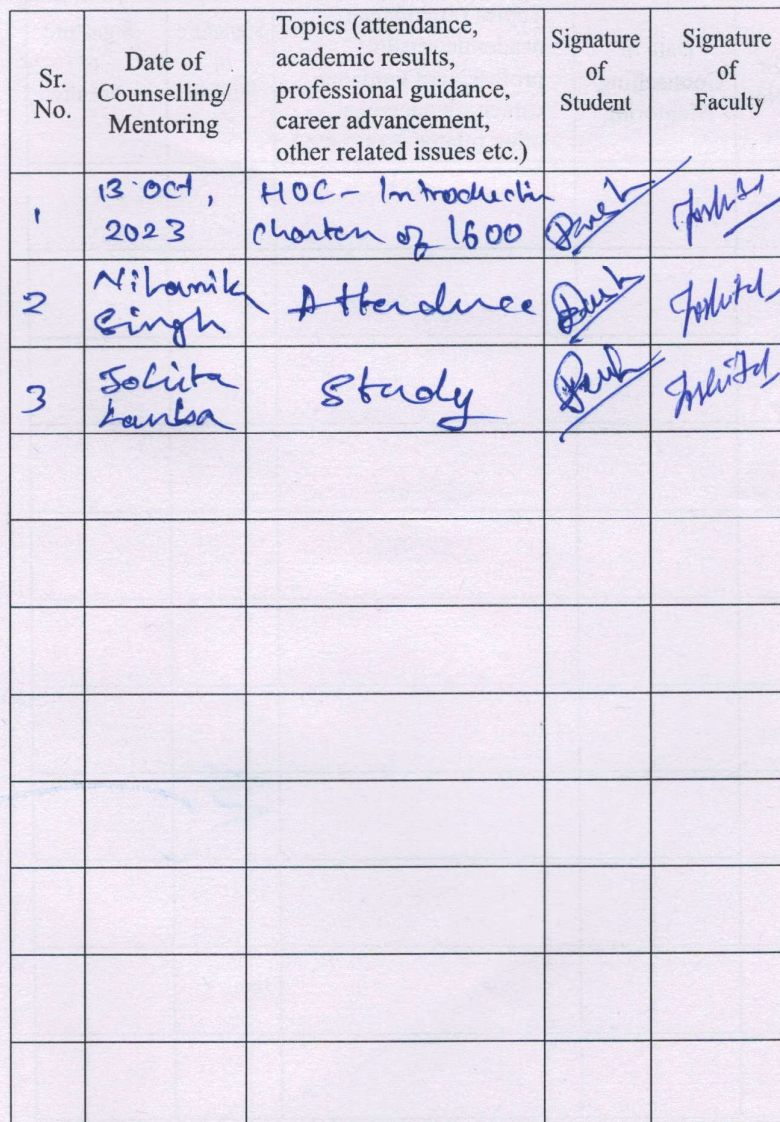 Sr.
No.
Date of
Counselling/
Mentoring
Topics (attendance,
academic results,
professional guidance,
career advancement,
other related issues etc.)
Signature
of
Student
Signature
of
Faculty
1
13 Oct,
2023
HOC - Introduction
Charter of 1600
2
Singh
Attendance
3
Study